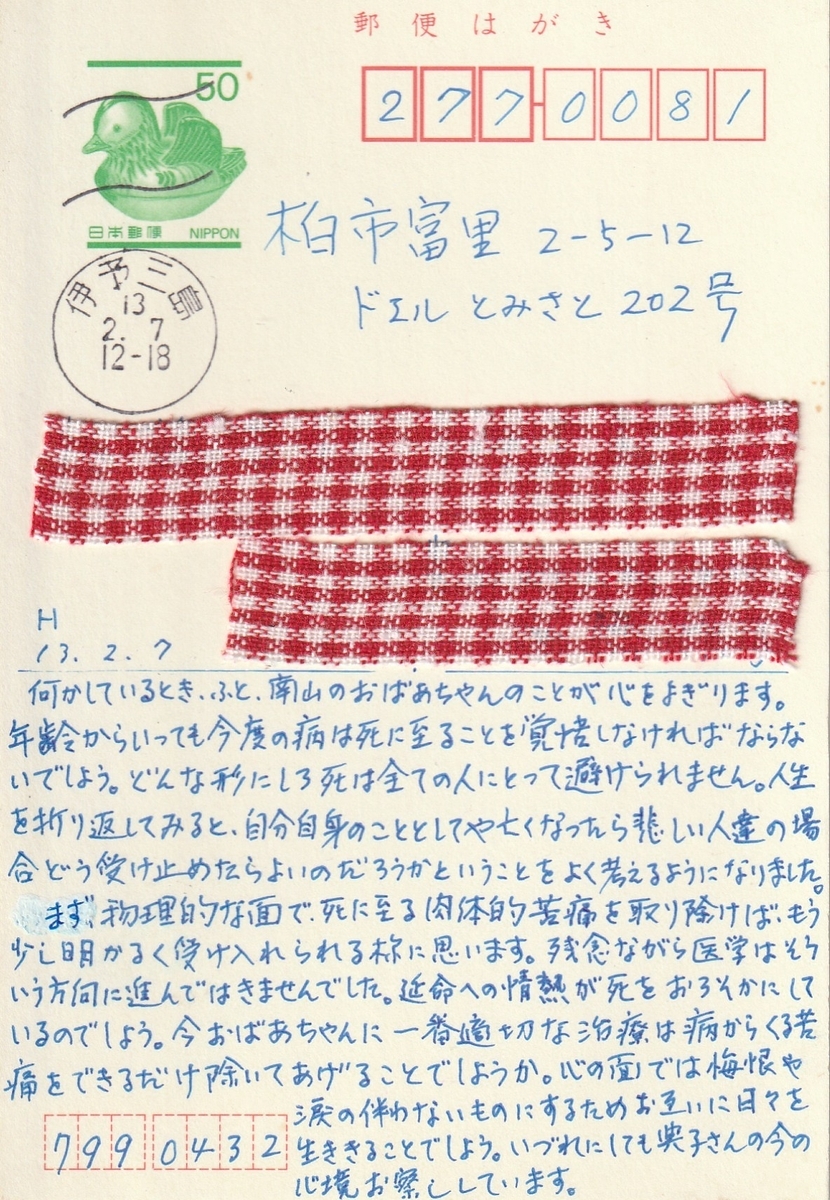 郵便はがき
50
日本郵便 NIPPON
277-0081
柏市富里 2-5-12
ドエル とみさと 202号
伊予三島
13
2. 7
12-18
H
13. 2. 7
何かしているとき、ふと、南山のおばあちゃんのことが心をよぎります。
年齢からいっても今度の病は死に至ることを覚悟しなければならな
いでしよう。どんな形にしろ死は全ての人にとって避けられません。人生
を折り返してみると、自分自身のこととしてや亡くなったら悲しい人達の場
合どう受け止めたらよいのだろうかということをよく考えるようになりました。
まず、物理的な面で、死に至る肉体的苦痛を取り除けば、もう
少し明かるく受け入れられる様に思います。残念ながら医学はそう
いう方向に進んではきませんでした。延命への情熱が死をおろそかにして
いるのでしょう。今おばあちゃんに一番適切な治療は病からくる苦
痛をできるだけ除いてあげることでしょうか。心の面では悔恨や
涙の伴わないものにするためお互いに日々を
生ききることでしょう。いづれにしても典子さんの今の
心境お察ししています。
799 0432